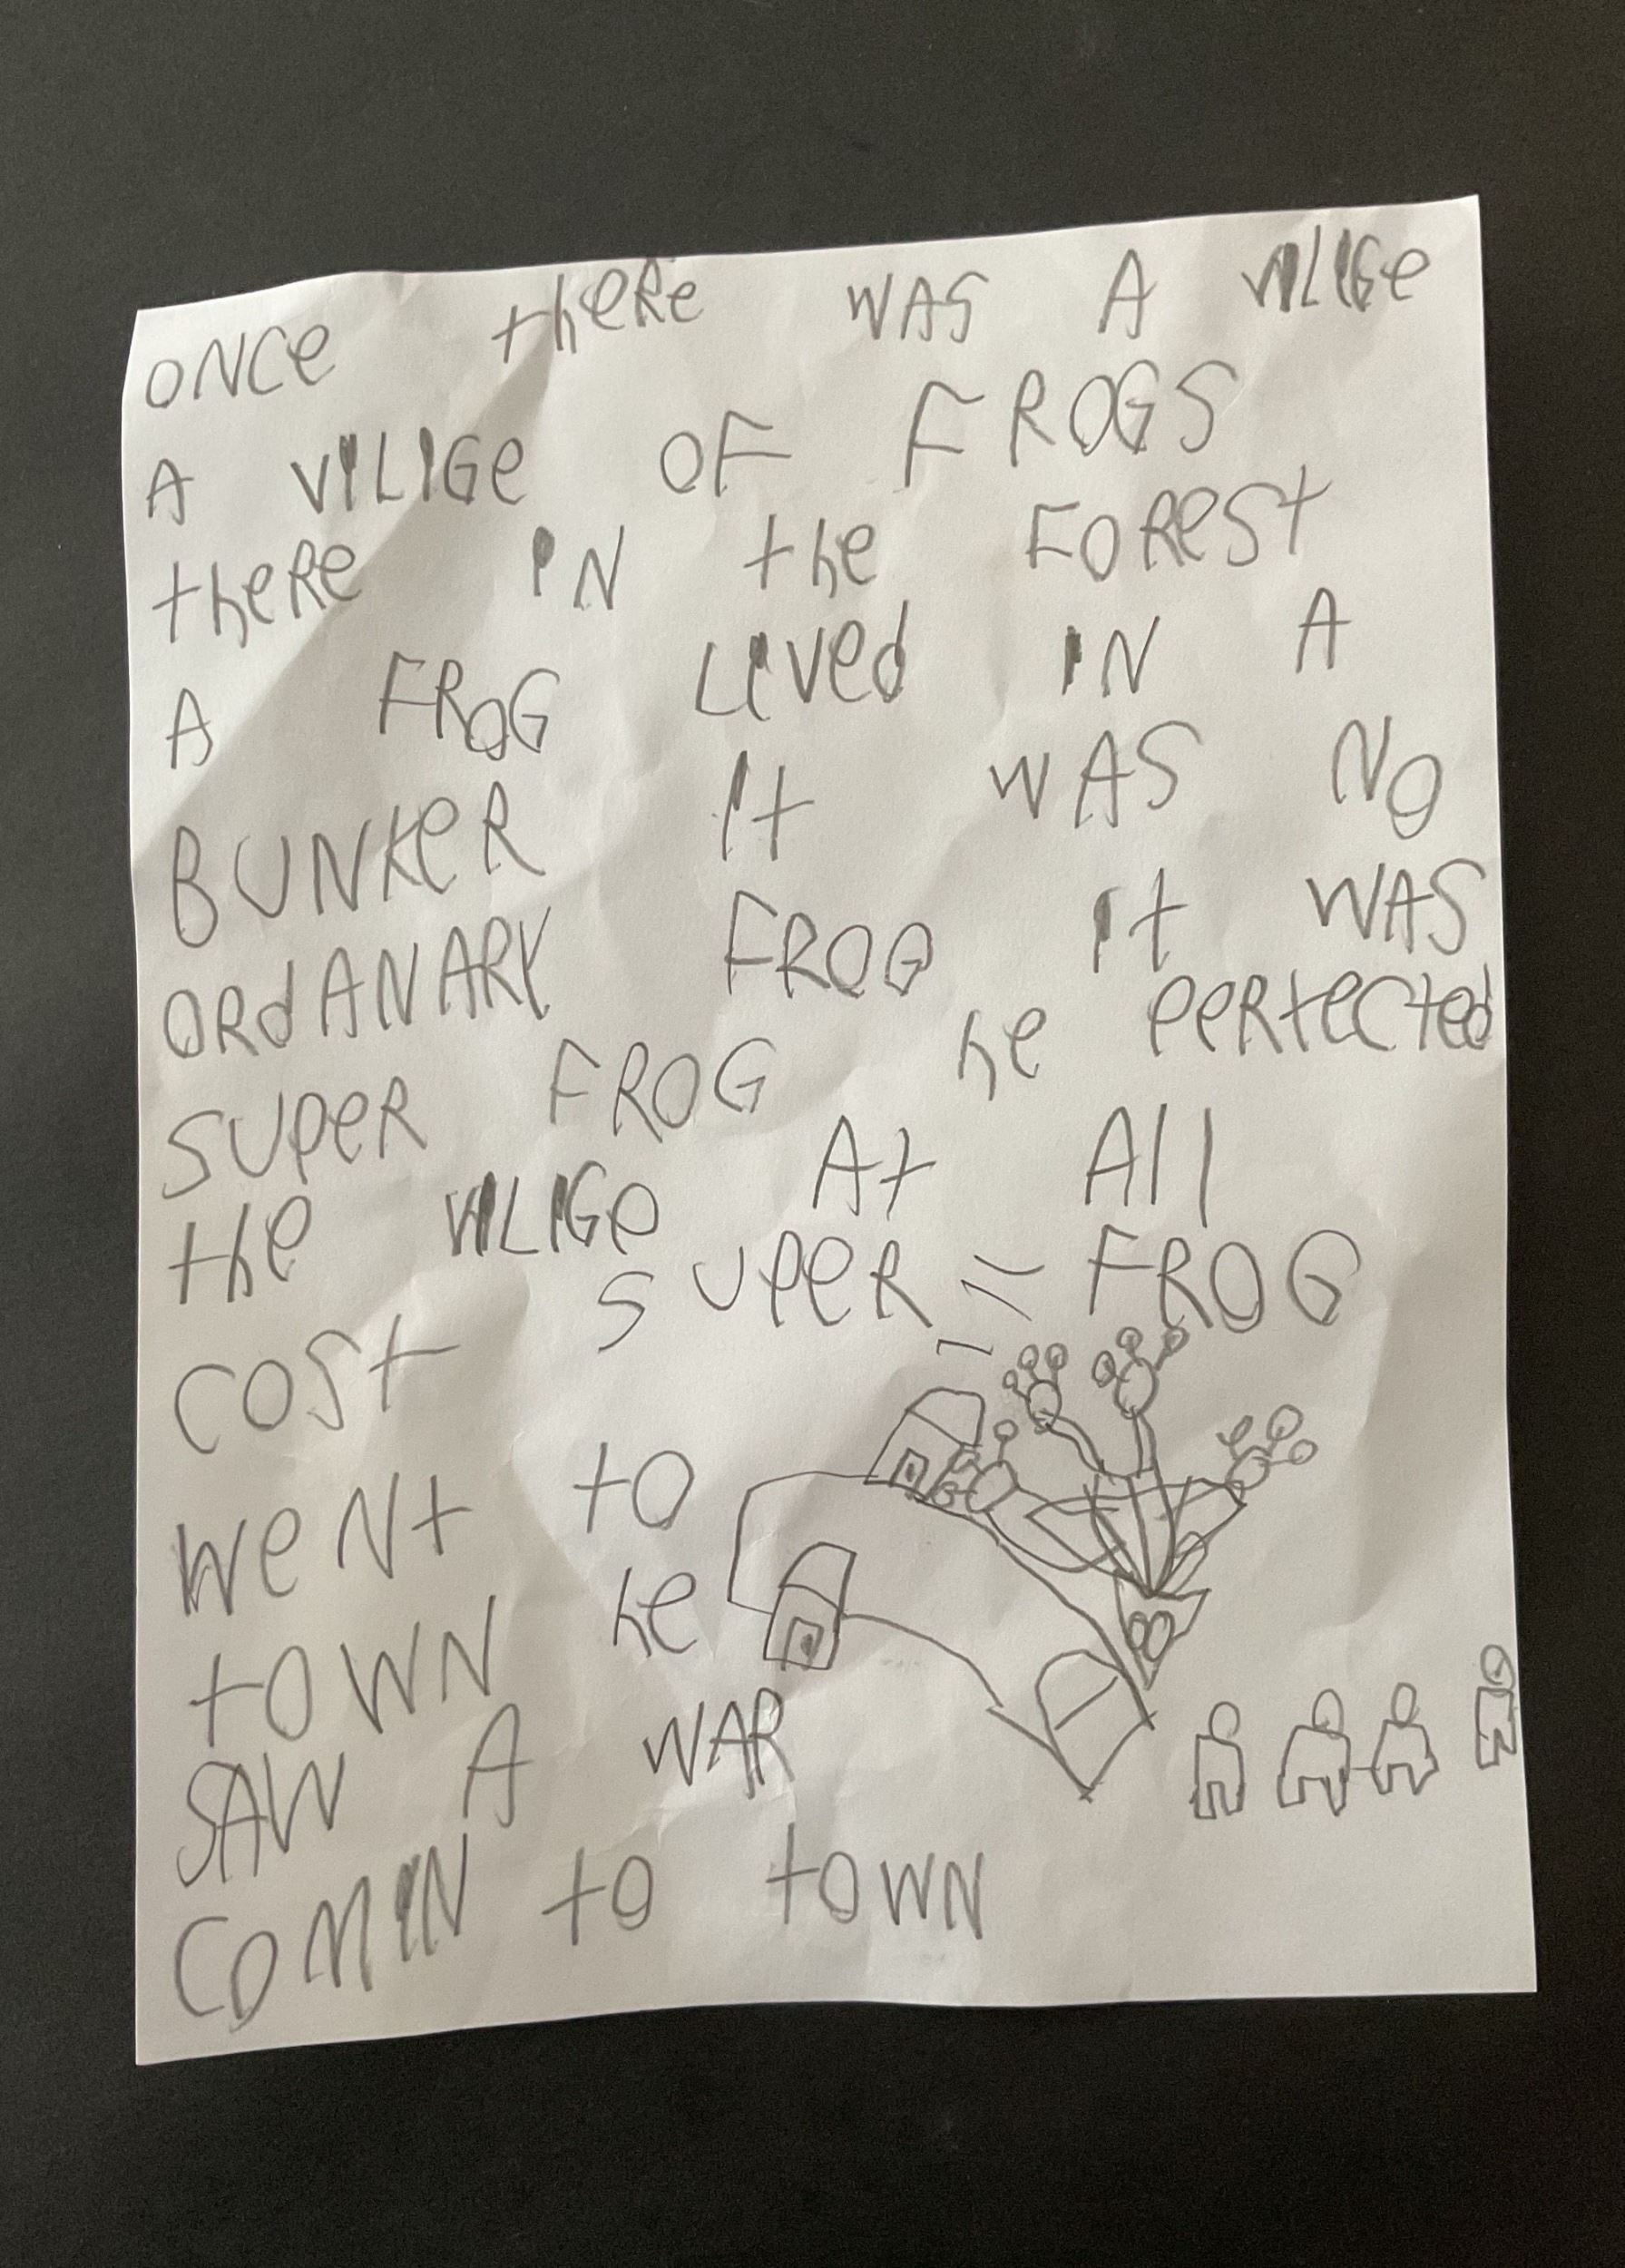 ONCe theRe WAS A VILIGe
A VILIGe OF FROGS
theRe IN the FOReSt
A FROG LIVed IN A
BUNKeR It WAS NO
ORdANARY FROG It WAS
SUPeR FROG he PeRtected
the VILIGe At All
COSt SUPeR = FROG
WeNt to
tOWN he
SAW A WAR
COMIN to tOWN